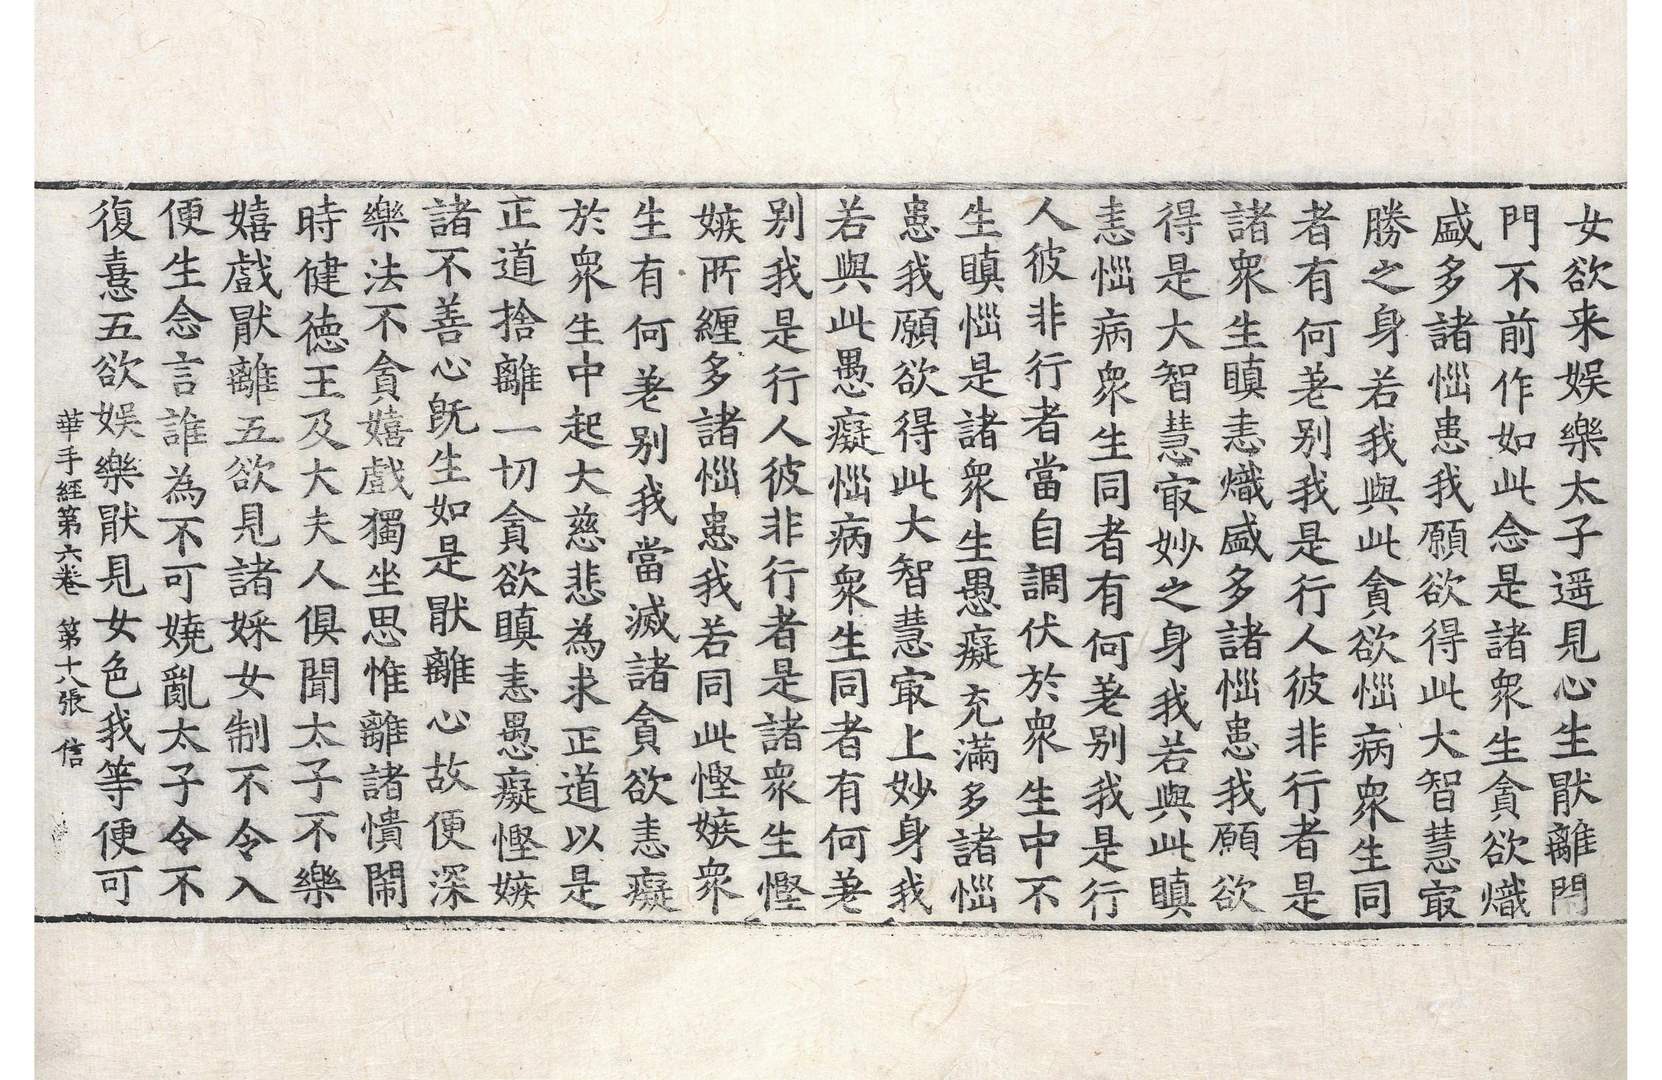 女欲来娛樂太子遥見心生猒離閇
門不前作如此念是諸衆生貪欲熾
盛多諸惱患我願欲得此大智慧㝡
勝之身若我與此貪欲惱病衆生同
者有何差别我是行人彼非行者是
諸衆生瞋恚熾盛多諸惱患我願欲
得是大智慧㝡妙之身我若與此瞋
恚惱病衆生同者有何差别我是行
人彼非行者當自調伏於衆生中不
生瞋惱是諸衆生愚癡充滿多諸惱
患我願欲得此大智慧㝡上妙身我
若與此愚癡惱病衆生同者有何差
别我是行人彼非行者是諸衆生慳
嫉所纏多諸惱患我若同此慳嫉衆
生有何差别我當滅諸貪欲恚癡
於衆生中起大慈悲為求正道以是
正道捨離一切貪欲瞋恚愚癡慳嫉
諸不善心旣生如是猒離心故便深
樂法不貪嬉戲獨坐思惟離諸憒閙
時健德王及大夫人俱聞太子不樂
嬉戲猒離五欲見諸婇女制不令入
便生念言誰為不可嬈亂太子令不
復憙五欲娛樂猒見女色我等便可
華手經第六卷 第十八張 信